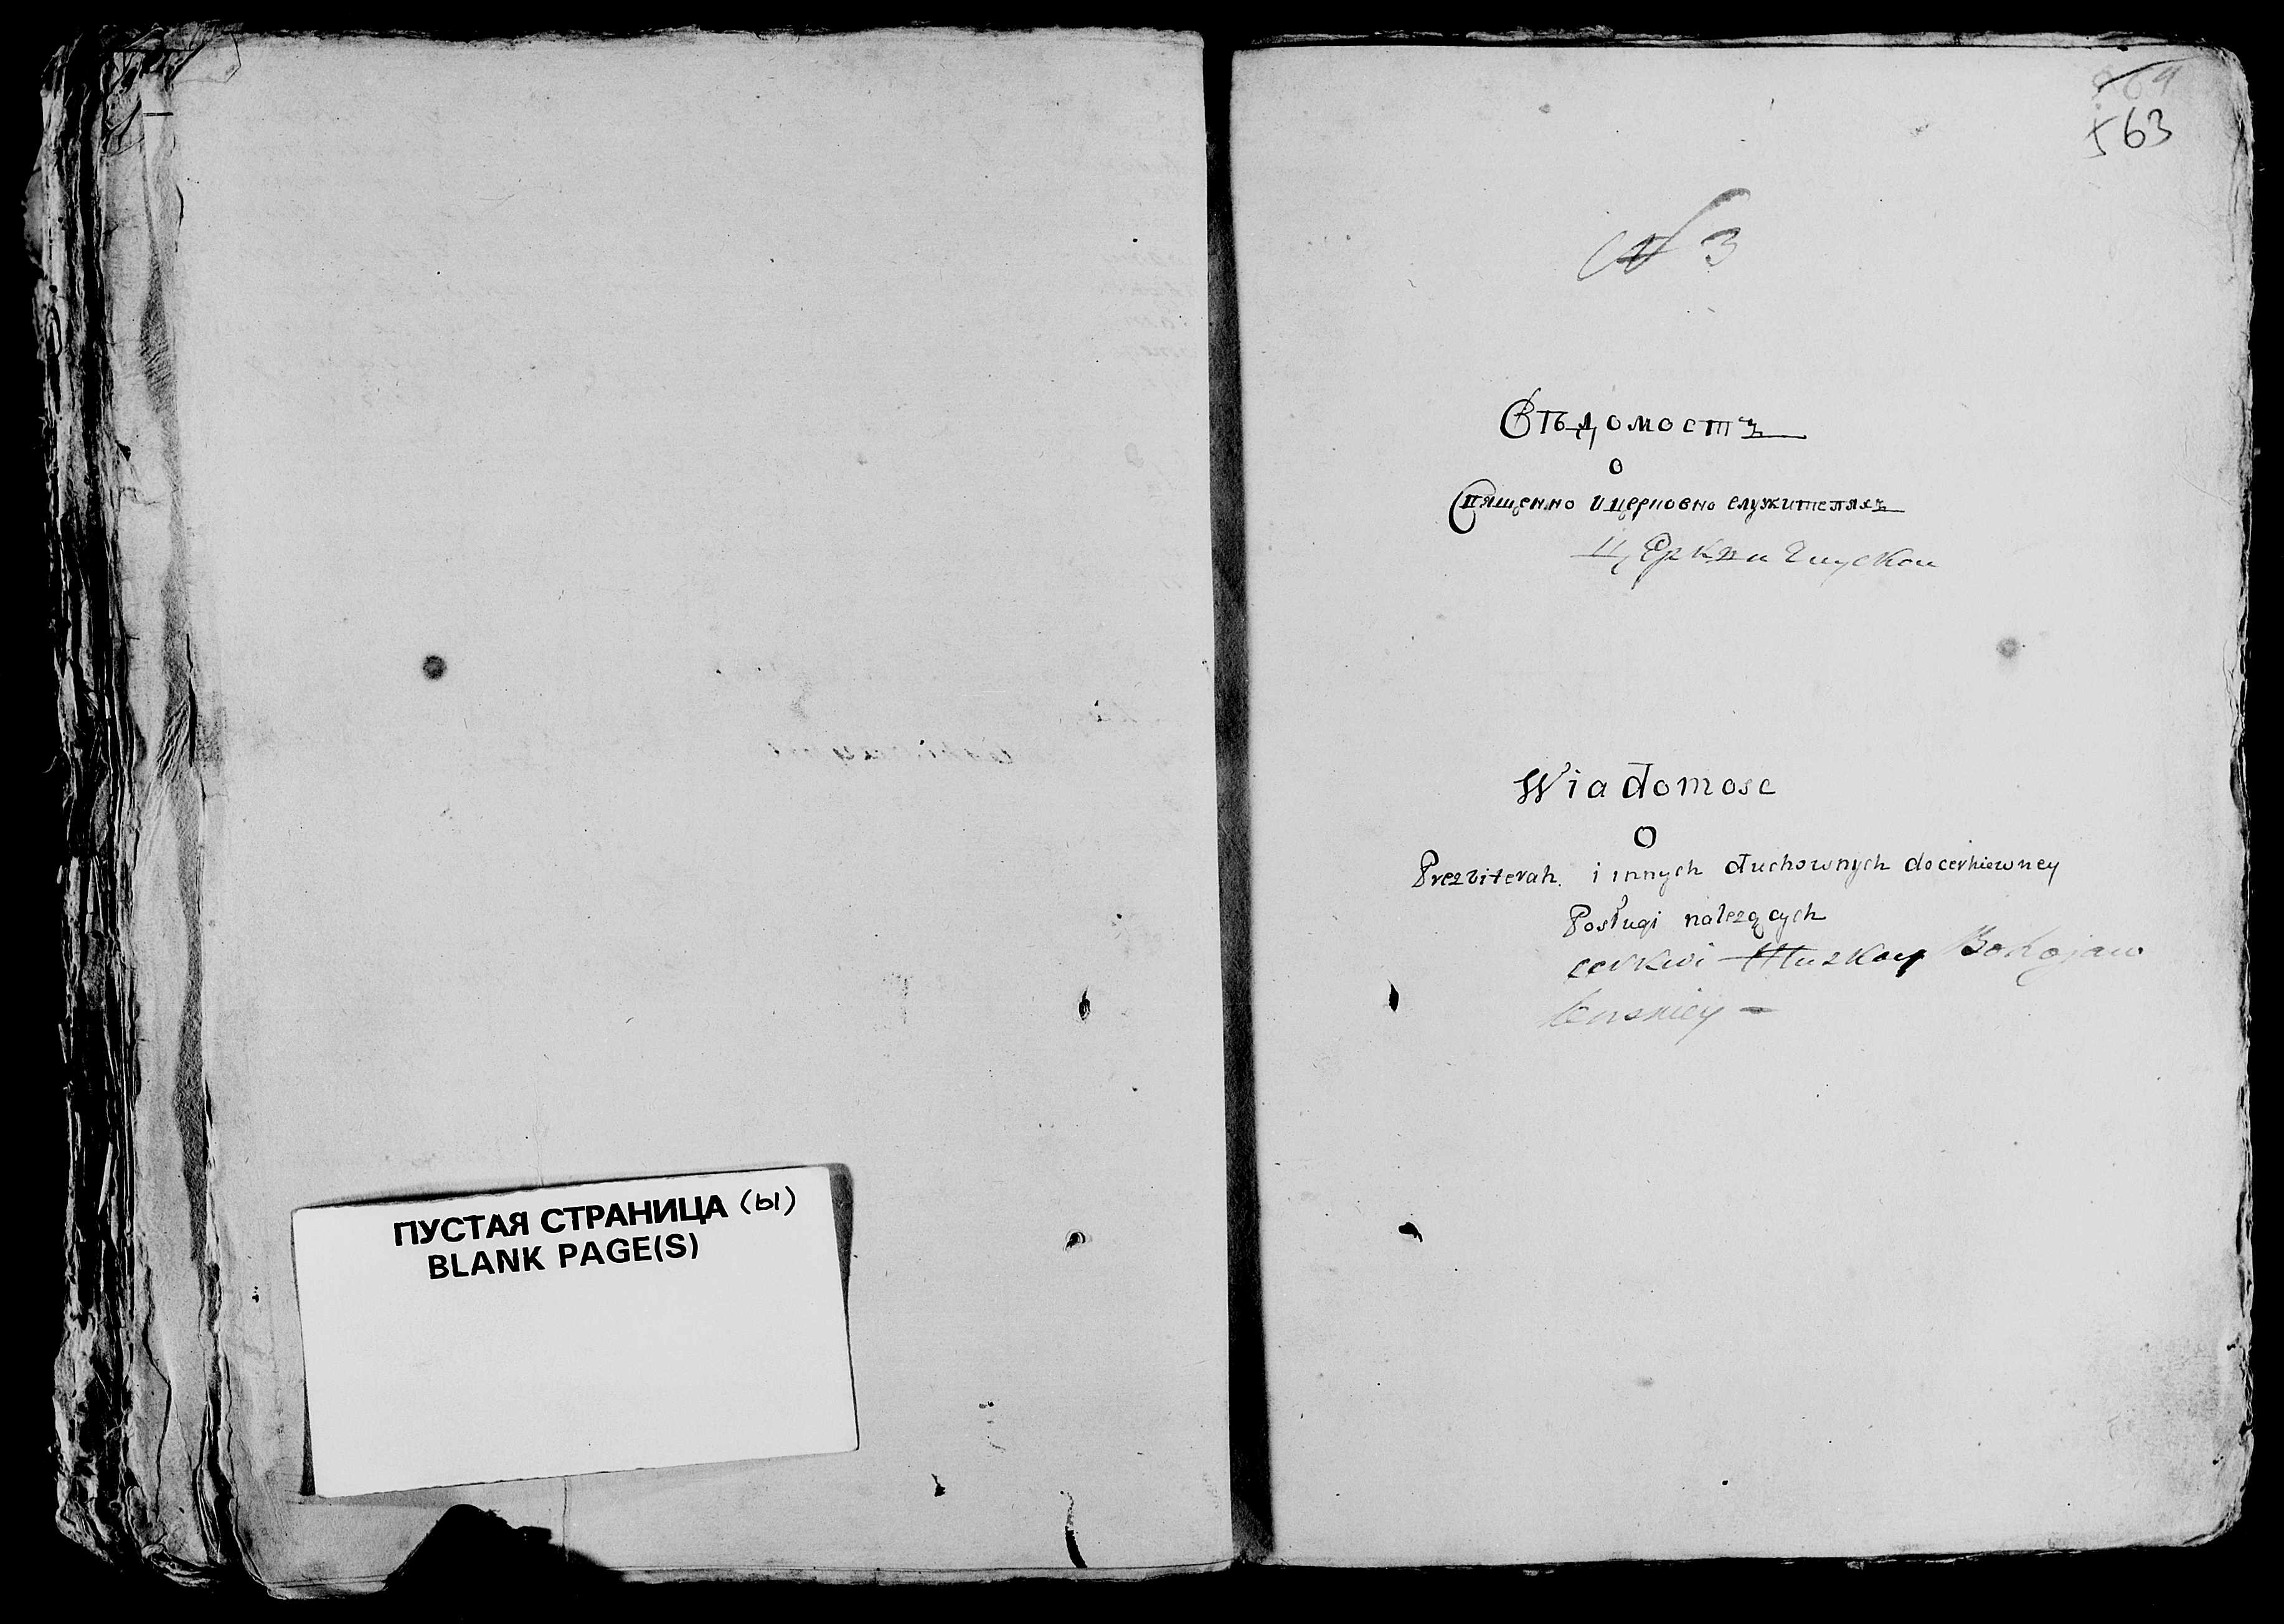 ПУСТАЯ СТРАНИЦА (ы)
BLANK PAGE(S)
563
№ 3
Вѣдомостъ
о
Священно и церковно служителяхъ
Церкви
Wiadomosc
O
Prezbiterah i innych duchownych do cerkiewney
Posługi nalezących
cerkwi Bohojaw
lenskiey